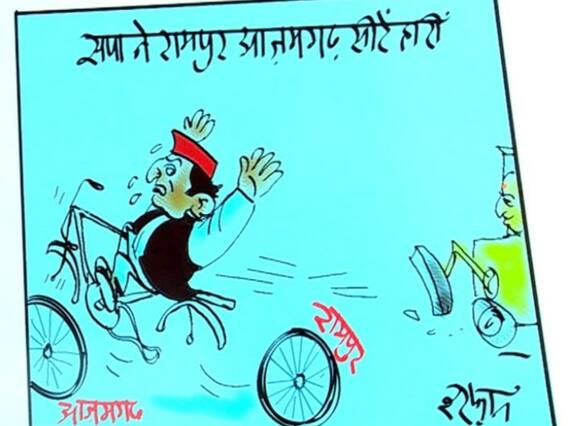 सपा ने रामपुर आज़मगढ़ सीटें हारीं
रामपुर
आजमगढ
इरफ़ान